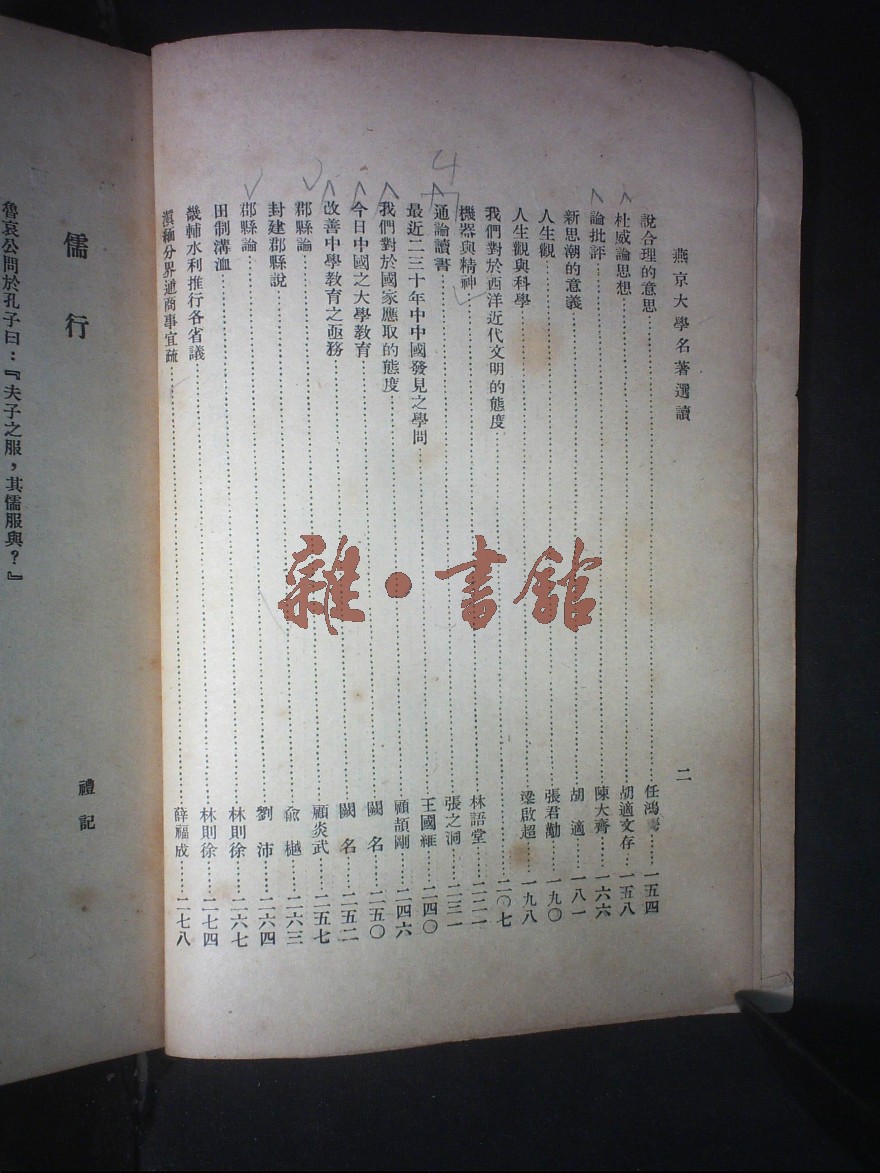 燕京大學名著選讀 二
說合理的意思……任鴻……一五四
杜威論思想……胡適文存……一五八
論批評……陳大齊……一六六
新思潮的意義……胡 適……一八一
人生觀……張君勱……一九〇
人生觀與科學……梁啟超……一九八
我們對於西洋近代文明的態度……二〇七
機器與精神……林語堂……二二一
4
通論讀書……張之洞……二三一
最近二三十年中中國發見之學問……王國維……二四〇
我們對於國家應取的態度……顧頡剛……二四六
今日中國之大學教育……闕 名……二五〇
改善中學教育之亟務……闕 名……二五二
郡縣論……顧炎武……二五七
封建郡縣說……俞 樾……二六三
郡縣論……劉 沛……二六四
田制溝洫……林則徐……二六七
畿輔水利推行各省議……林則徐……二七四
滇緬分界通商事宜疏……薛福成……二七八
儒行 禮記
魯哀公問於孔子曰：『夫子之服，其儒服與？』
雜·書館